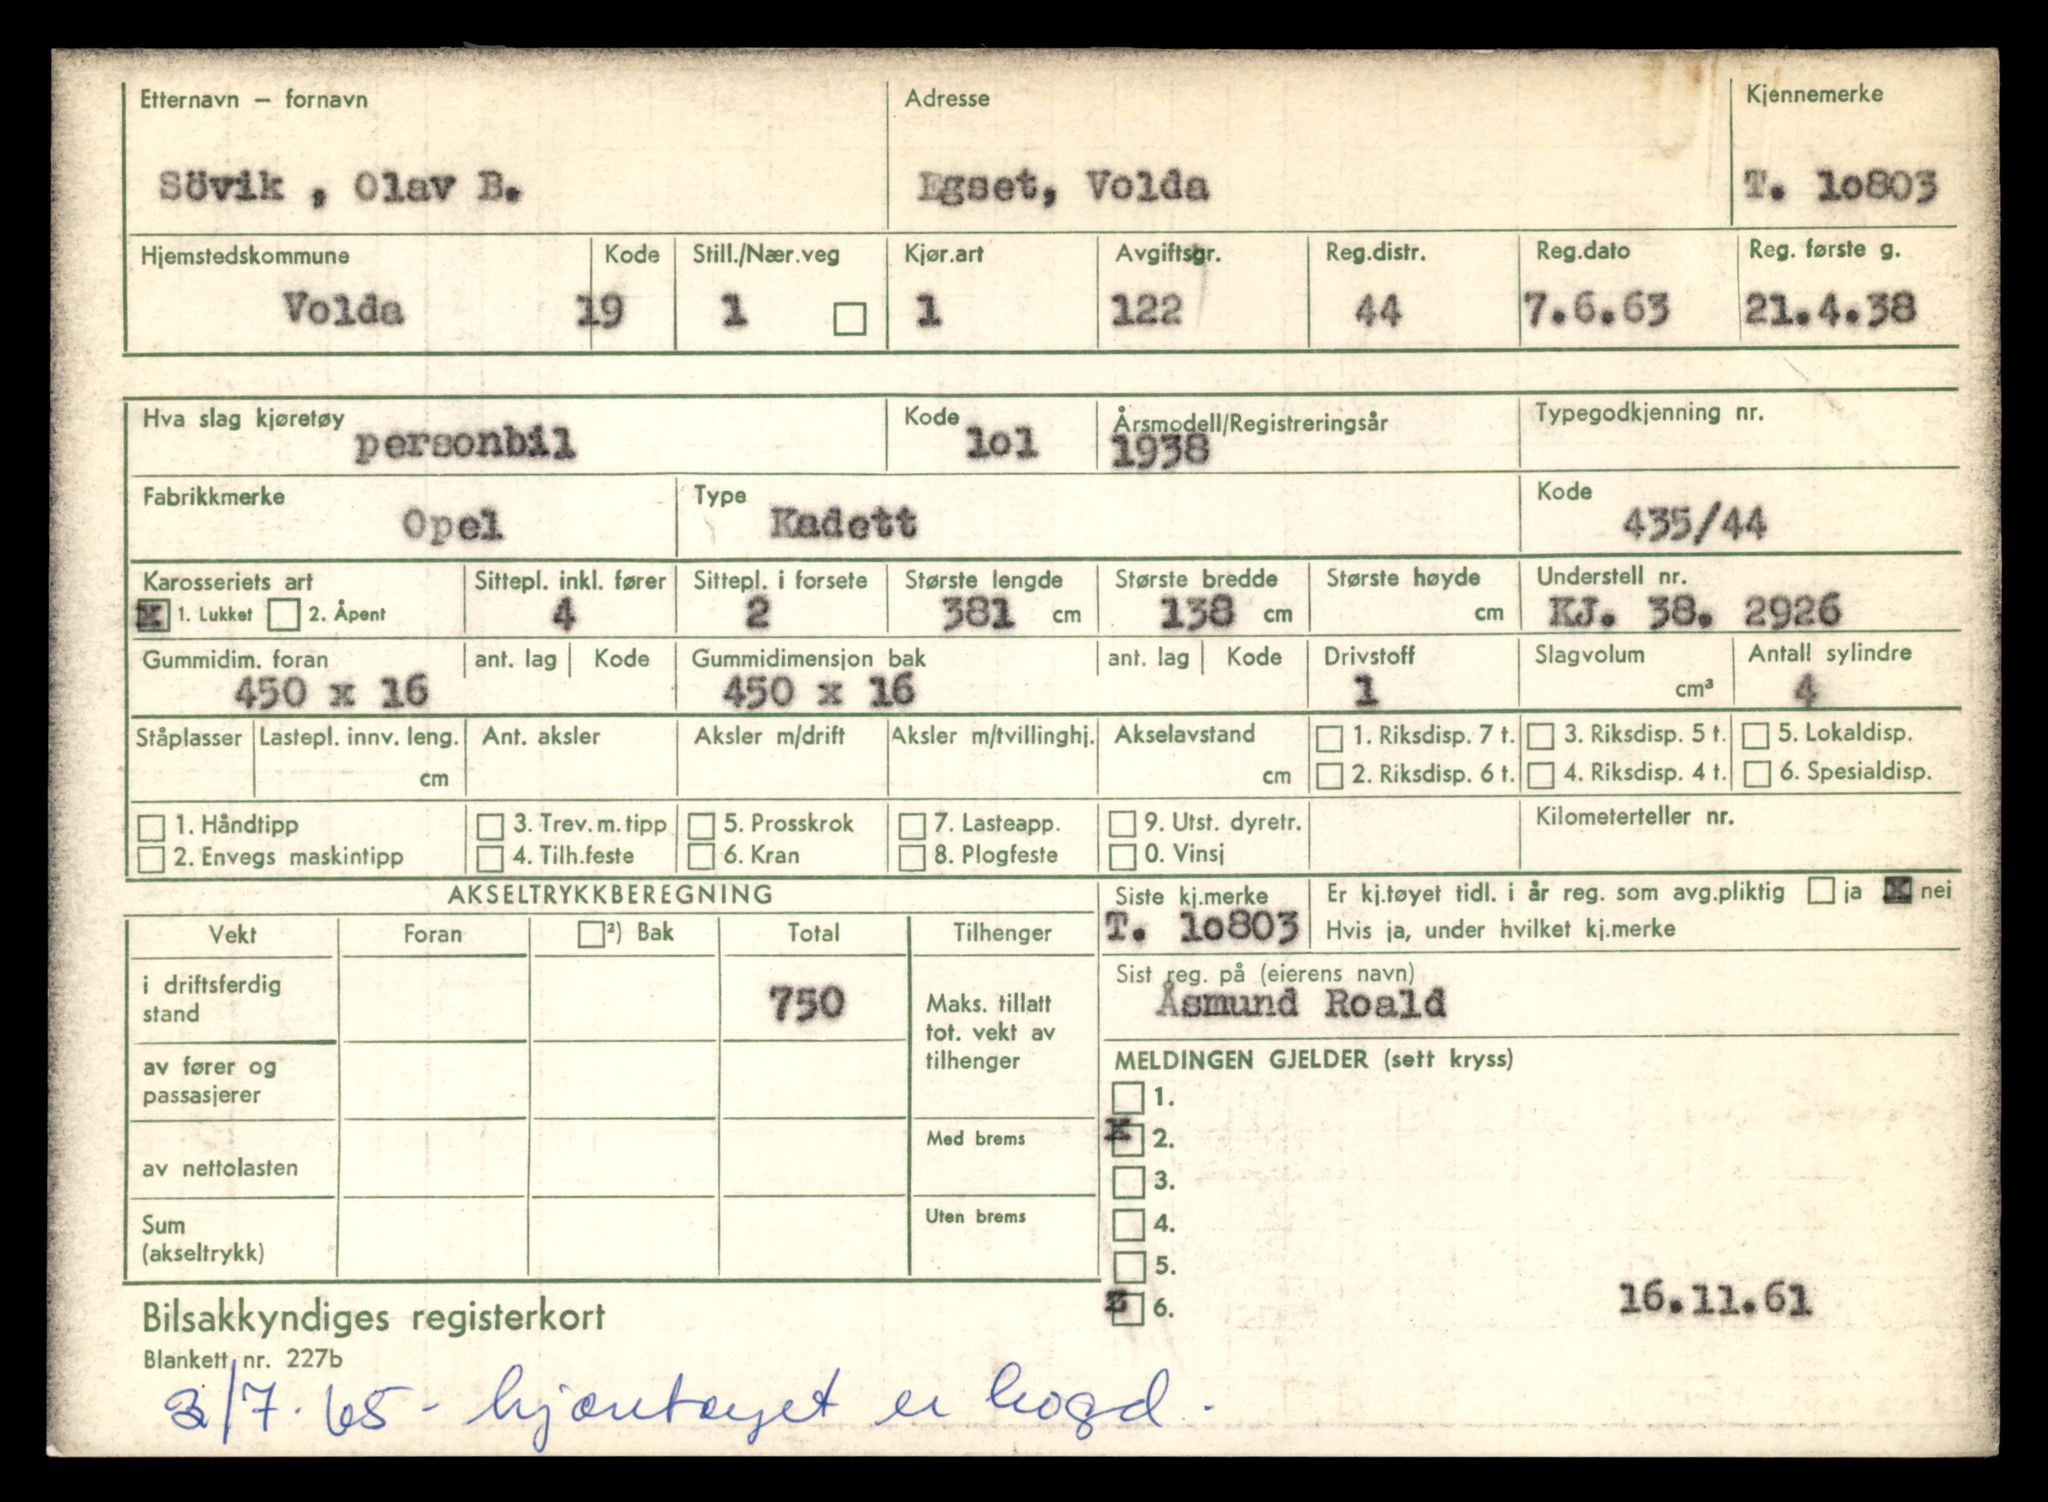 Etternavn – fornavn Adresse Kjennemerke
Sövik , Olav B. Egset, Volda T. 10803
Hjemstedskommune Kode Still./Nær.veg Kjør.art Avgiftsgr. Reg.distr. Reg.dato Reg. første g.
Volda 19 1 1 122 44 7.6.63 21.4.38
Hva slag kjøretøy Kode Årsmodell/Registreringsår Typegodkjenning nr.
personbil 101 1938
Fabrikkmerke Type Kode
Opel Kadett 435/44
Karosseriets art Sittepl. inkl. fører Sittepl. i forsete Største lengde Største bredde Største høyde Understell nr.
X 1. Lukket 2. Åpent 4 2 381 cm 138 cm cm KJ. 38. 2926
Gummidim. foran ant. lag Kode Gummidimensjon bak ant. lag Kode Drivstoff Slagvolum Antall sylindre
450 x 16 450 x 16 1 cm³ 4
Ståplasser Lastepl. innv. leng. Ant. aksler Aksler m/drift Aksler m/tvillinghj. Akselavstand 1. Riksdisp. 7 t. 3. Riksdisp. 5 t. 5. Lokaldisp.
cm cm 2. Riksdisp. 6 t. 4. Riksdisp. 4 t. 6. Spesialdisp.
1. Håndtipp 3. Trev. m. tipp 5. Prosskrok 7. Lasteapp. 9. Utst. dyretr. Kilometerteller nr.
2. Envegs maskintipp 4. Tilh.feste 6. Kran 8. Plogfeste 0. Vinsj
AKSELTRYKKBEREGNING Siste kj.merke Er kj.tøyet tidl. i år reg. som avg.pliktig ja X nei
Vekt Foran ²) Bak Total Tilhenger T. 10803 Hvis ja, under hvilket kj.merke
Sist reg. på (eierens navn)
i driftsferdig
stand 750 Maks. tillatt Åsmund Roald
tot. vekt av
tilhenger MELDINGEN GJELDER (sett kryss)
av fører og
passasjerer 1.
Med brems X 2.
av nettolasten 3.
Uten brems 4.
Sum
(akseltrykk) 5.
6. 16.11.61
Bilsakkyndiges registerkort
Blankett nr. 227b
3/7.65 - kjøretøyet er hogd.